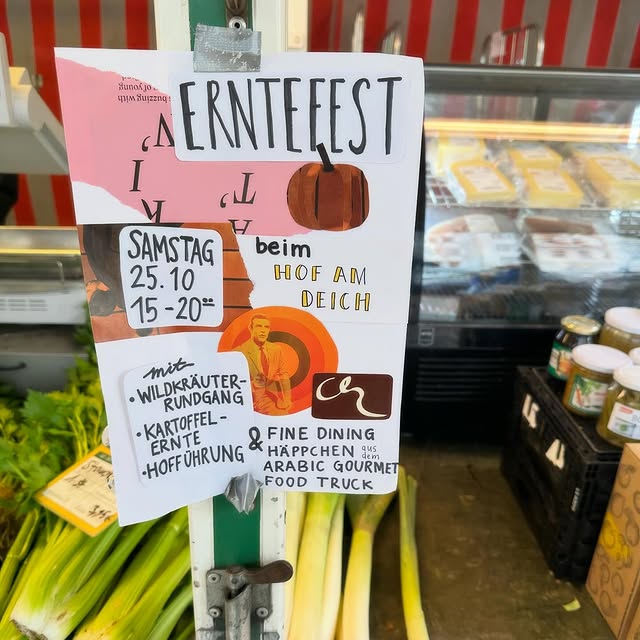 buzzing with
ERNTEFEST
SAMSTAG
25.10
15-20⁰⁰
beim
HOF AM
DEICH
mit
• WILDKRÄUTER-
RUNDGANG
• KARTOFFEL-
ERNTE
• HOFFÜHRUNG
& FINE DINING
HÄPPCHEN aus dem
ARABIC GOURMET
FOOD TRUCK